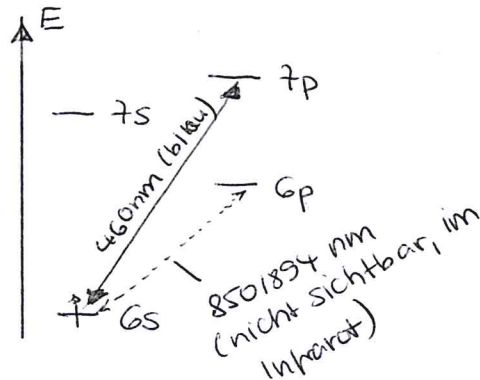 E
7p
7s
460nm (blau)
6p
6s
850/894 nm
(nicht sichtbar, im
Infrarot)